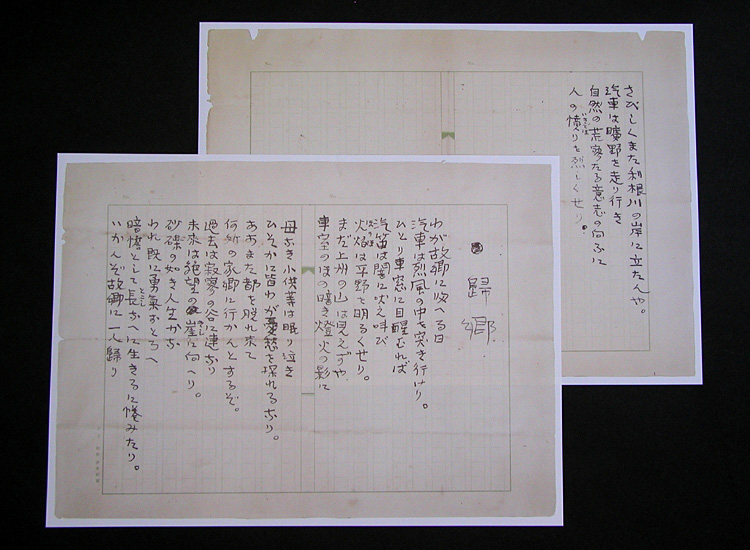 歸郷
わが故郷に帰へる日
汽車は烈風の中を突き行けり。
ひとり車窓に目醒むれば
汽笛は闇に吠え叫び
火焔は平野を明るくせり。
まだ上州の山は見えずや
車室のほの暗き燈火の影に
母なき小供等は眠り泣き
ひそかに皆わが憂愁を探れるなり。
ああまた都を脱れ来て
何所の家郷に行かんとするぞ。
過去は寂寥の谷に連なり
未来は絶望の崖に向へり。
砂礫の如き人生かな
われ既に勇氣おとろへ
暗憺として長へに生きるに倦みたり。
いかんぞ故郷に一人歸り
さびしくまた利根川の岸に立たんや。
汽車は曠野を走り行き
自然の荒寥たる意志の向ふに
人の憤りを烈しくせり。